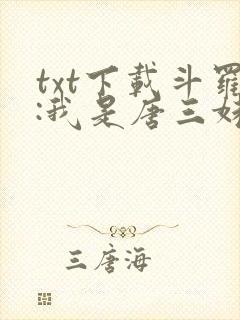 txt下載斗羅
:我是唐三
三唐海